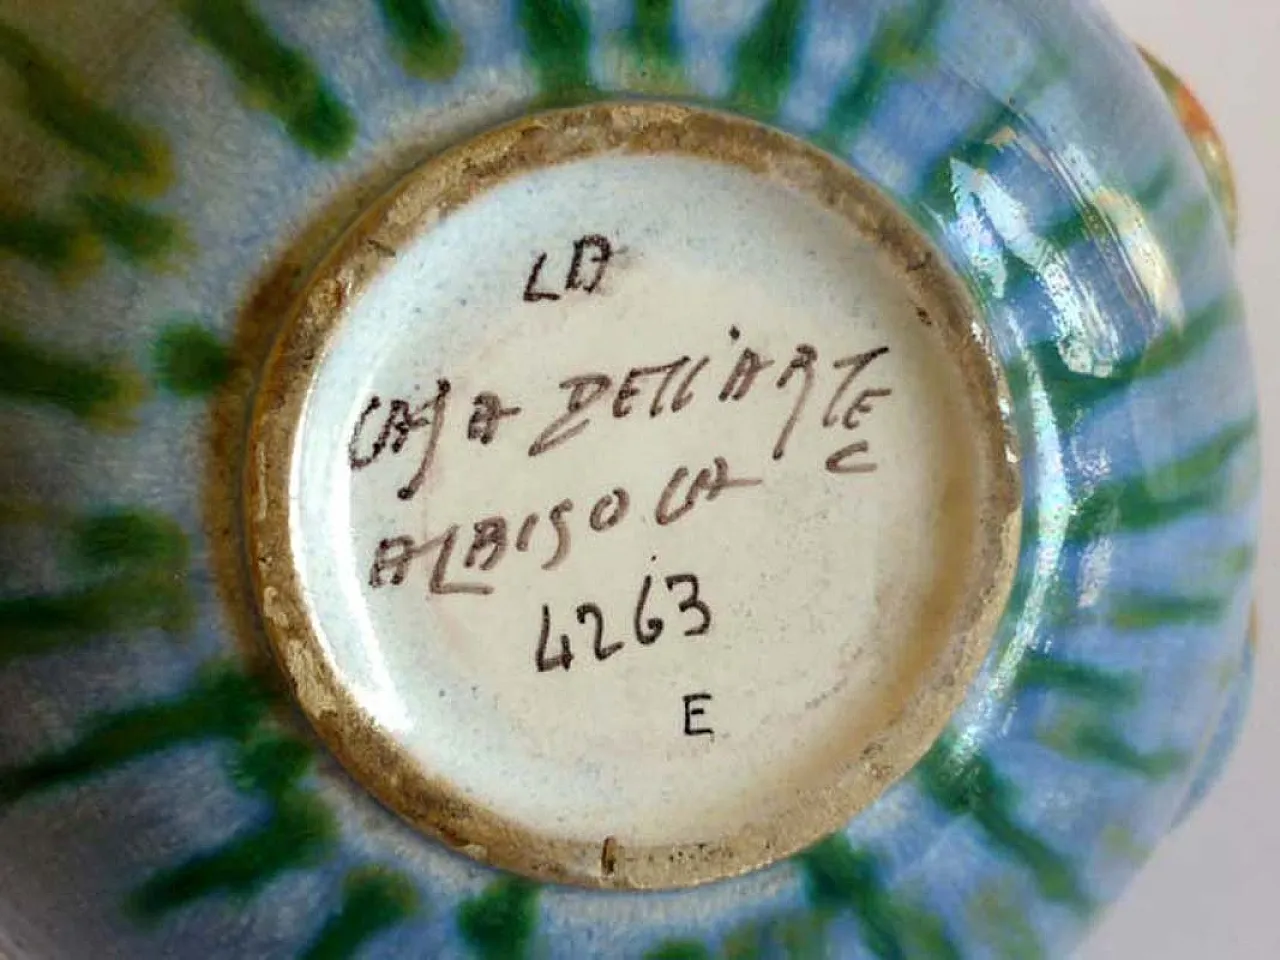 LA
CASA DELL'ARTE
C
ALBISOLA
4263
E